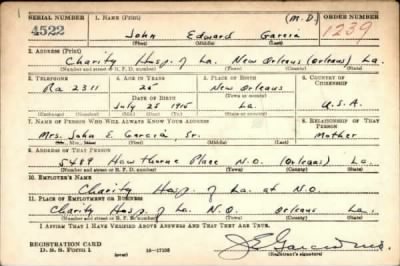 SERIAL NUMBER 1. NAME (Print) (M.D.) ORDER NUMBER
4522 John Edward Garcia 1239
(First) (Middle) (Last)
2. ADDRESS (Print)
Charity Hosp. of La. New Orleans (Orleans) La.
(Number and street or R. F. D. number) (Town) (County) (State)
3. TELEPHONE 4. AGE IN YEARS 5. PLACE OF BIRTH 6. COUNTRY OF CITIZENSHIP
Ra 2311 25 New Orleans
DATE OF BIRTH (Town or county)
July 25 1915 La. U.S.A.
(Exchange) (Number) (Mo.) (Day) (Yr.) (State or country)
7. NAME OF PERSON WHO WILL ALWAYS KNOW YOUR ADDRESS 8. RELATIONSHIP OF THAT PERSON
Mrs. John E. Garcia Sr. Mother
(Mr., Mrs., Miss) (First) (Middle) (Last)
9. ADDRESS OF THAT PERSON
5489 Hawthorne Place N.O. (Orleans) La.
(Number and street or R. F. D. number) (Town) (County) (State)
10. EMPLOYER'S NAME
Charity Hosp. of La. at N.O.
11. PLACE OF EMPLOYMENT OR BUSINESS
Charity Hosp. of La. N.O. Orleans La.
(Number and street or R. F. D. number) (Town) (County) (State)
I AFFIRM THAT I HAVE VERIFIED ABOVE ANSWERS AND THAT THEY ARE TRUE.
REGISTRATION CARD
D. S. S. Form 1 (over) 16-17105 (Registrant's signature)